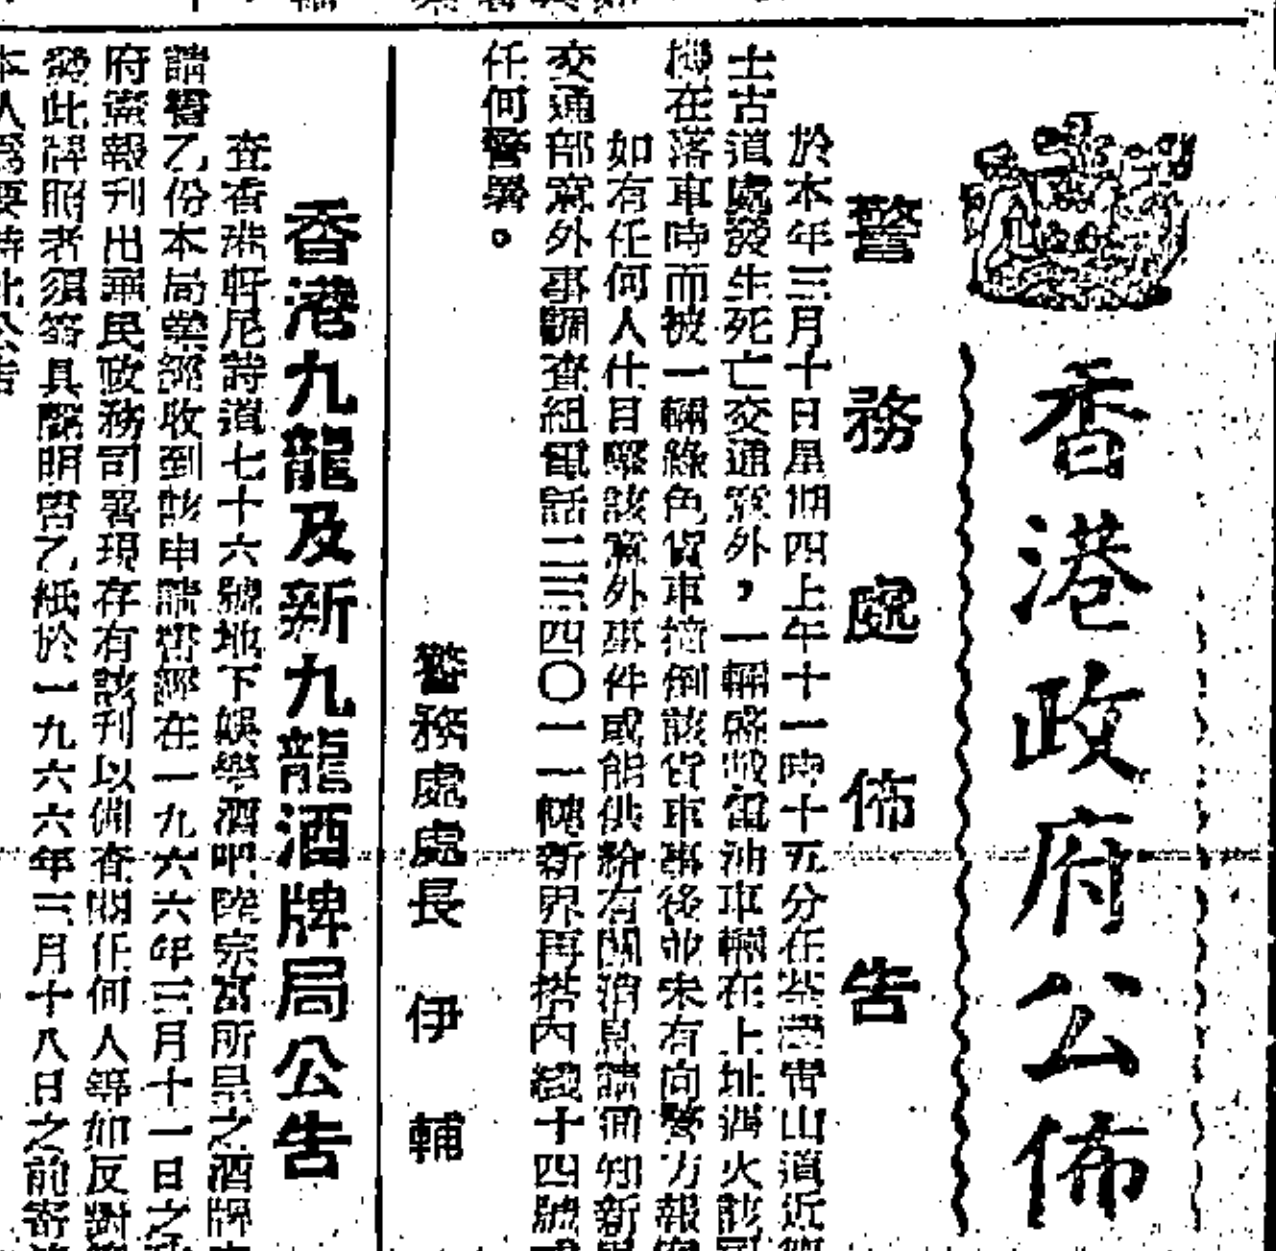 香港政府公佈
警務處佈告
於本年三月十日星期四上午十一時十五分在荃灣青山道近
士古道處發生死亡交通意外，一輛盛載電油車輛在上址遇火該司
機在落車時而被一輛綠色貨車撞倒該貨車事後並未有向警方報案
如有任何人仕目擊該意外事件或能供給有關消息請通知新界
交通部意外事調查組電話二三四〇一一轉新界再搭內綫十四號或
任何警署。
警務處處長 伊輔
香港九龍及新九龍酒牌局公告
查香港軒尼詩道七十六號地下娛樂酒吧 宗富所呈之酒牌
請書乙份本局業經收到該申請書經在一九六六年三月十一日之
府憲報刊出華民政務司署現存有該刊以備查閱任何人等如反對
發此牌照者須簽具聲明書乙紙於一九六六年三月十八日之前寄
本人為要特此公告